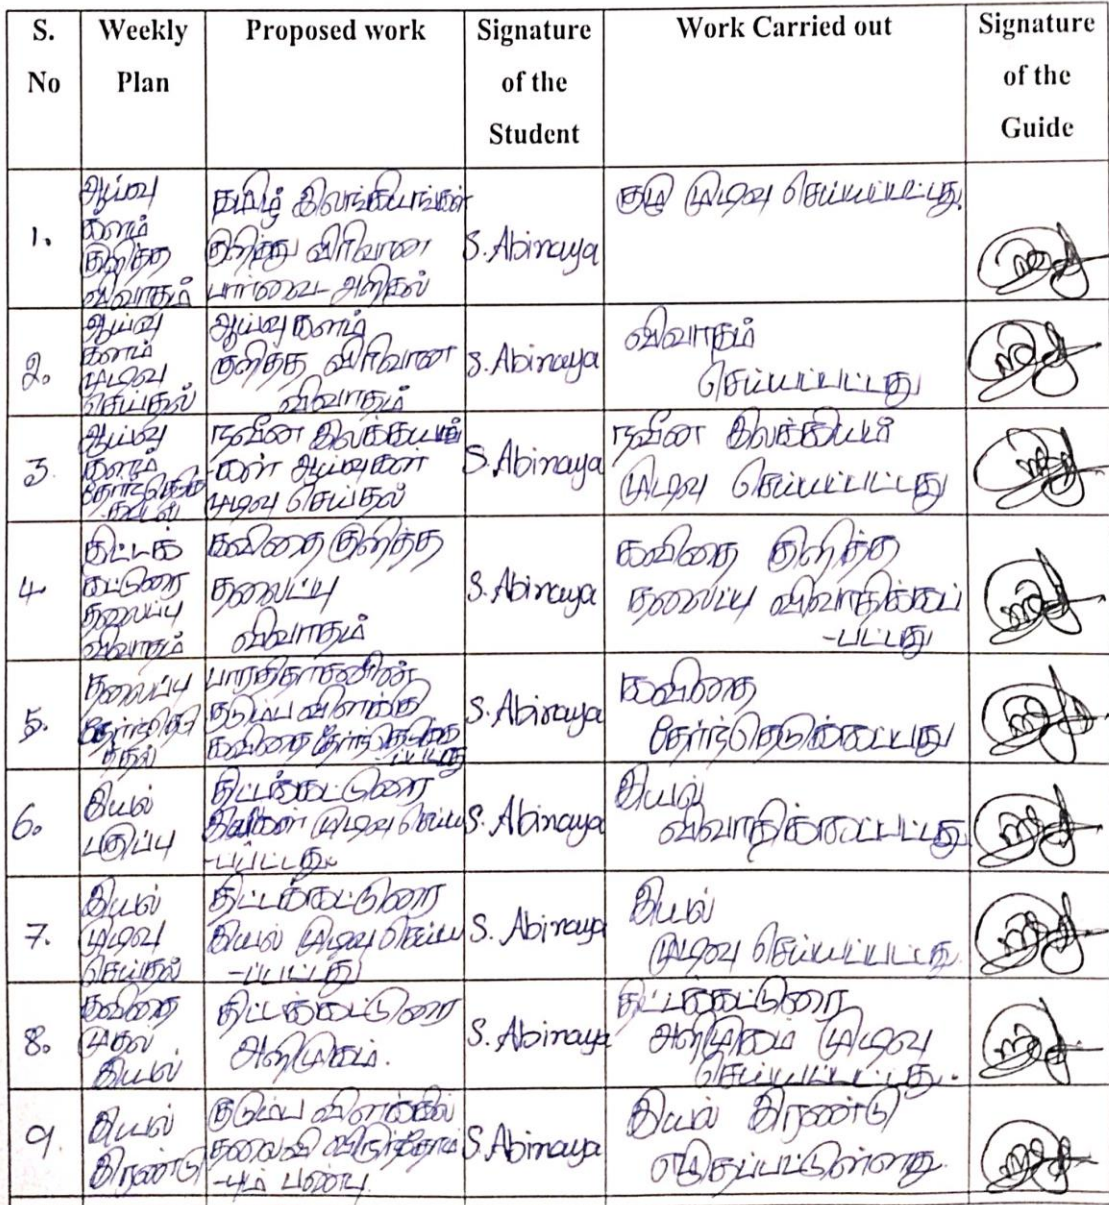 S. No
Weekly Plan
Proposed work
Signature of the Student
Work Carried out
Signature of the Guide
1.
ஆய்வு
களம்
குறித்த
விவாதம்
தமிழ் இலக்கியங்கள்
குறித்து விரிவான
பார்வை - அறிதல்
S. Abinaya
முடிவு செய்யப்பட்டது.
2.
ஆய்வு
களம்
முடிவு
செய்தல்
ஆய்வு களம்
குறித்த விரிவான
விவாதம்
S. Abinaya
விவாதம்
செய்யப்பட்டது
3.
ஆய்வு
களம்
நவீன இலக்கியங்
-கள் ஆய்வுகள்
முடிவு செய்தல்
S. Abinaya
நவீன இலக்கியம்
முடிவு செய்யப்பட்டது
4.
திட்டக்
கட்டுரை
தலைப்பு
விவாதம்
கவிதை குறித்த
தலைப்பு
விவாதம்
S. Abinaya
கவிதை குறித்த
தலைப்பு விவாதிக்கப்
-பட்டது
5.
தலைப்பு
தேர்ந்தெடு
த்தல்
பாரதிதாசனின்
குடும்ப விளக்கு
கவிதை தேர்ந்தெடுக்க
-ப்பட்டது
S. Abinaya
கவிதை
தேர்ந்தெடுக்கப்பட்டது
6.
இயல்
பகுப்பு
திட்டக்கட்டுரை
இயல்கள் முடிவு செய்ய
-ப்பட்டது.
S. Abinaya
இயல்
விவாதிக்கப்பட்டது.
7.
இயல்
முடிவு
செய்தல்
திட்டக்கட்டுரை
இயல் முடிவு செய்ய
-ப்பட்டது
S. Abinaya
இயல்
முடிவு செய்யப்பட்டது.
8.
கவிதை
முதல்
இயல்
திட்டக்கட்டுரை
அறிமுகம்.
S. Abinaya
திட்டக்கட்டுரை
அறிமுகம் முடிவு
செய்யப்பட்டது.
9.
இயல்
இரண்டு
குடும்ப விளக்கில்
தலைவி விருந்தோம்
-பும் பண்பு.
S. Abinaya
இயல் இரண்டு
எழுதப்பட்டுள்ளது.